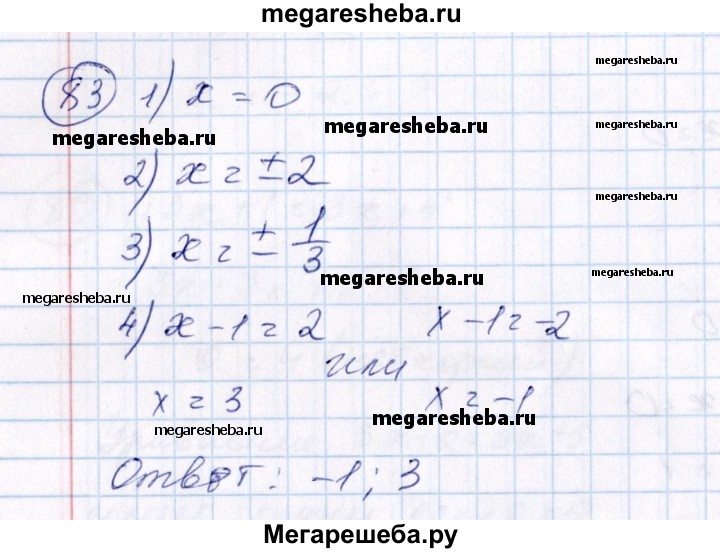 megaresheba.ru
83 1) x = 0
megaresheba.ru
megaresheba.ru
megaresheba.ru
2) x = ± 2
megaresheba.ru
3) x = ± 1/3
megaresheba.ru
megaresheba.ru
megaresheba.ru
4) x - 1 = 2 x - 1 = -2
или
x = 3 x = -1
megaresheba.ru
megaresheba.ru
Ответ: -1; 3
Мегарешеба.ру